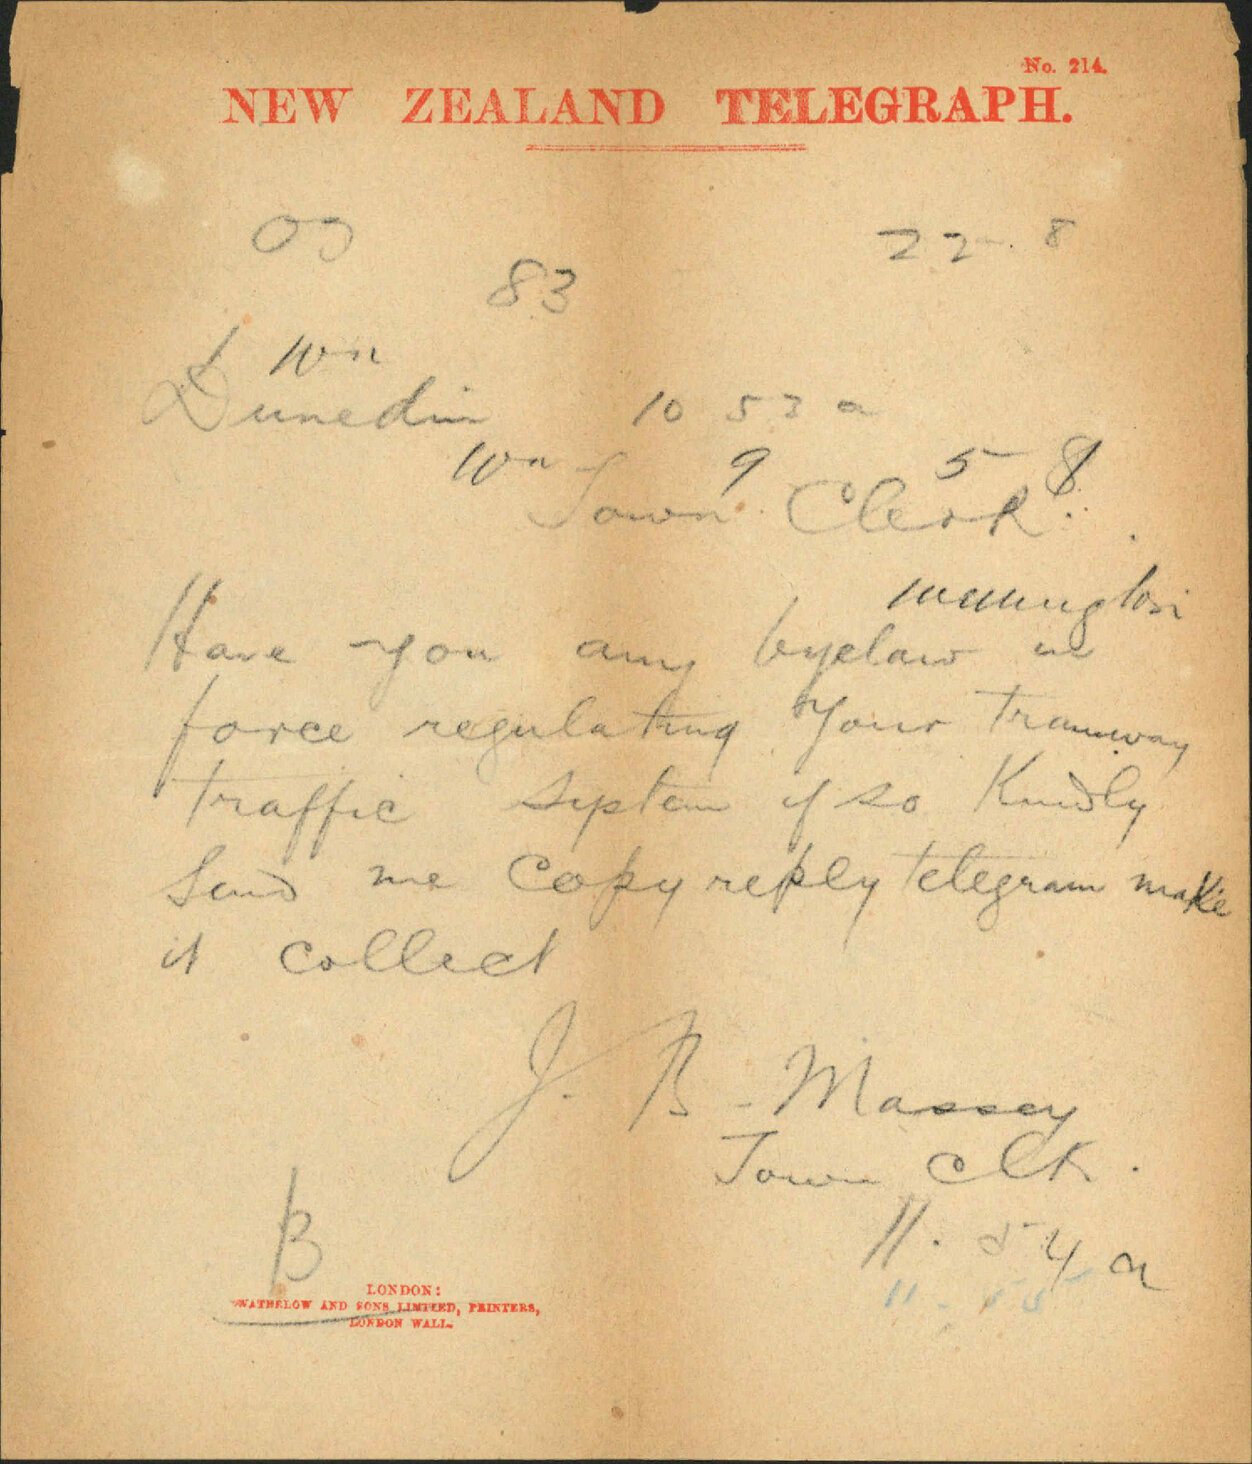 No. 214.
NEW ZEALAND TELEGRAPH.
22. 8
83
Wn
Dunedin 10 53 a
Wn 9 5 8
Town Clerk.
Have you any byelaw in
force regulating your tramway
traffic system if so Kindly
Send me Copy reply telegram make
it collect
J. B. Massey
Town Clk.
11. 54 a
B
11.55
LONDON:
WATERLOW AND SONS LIMITED, PRINTERS,
LONDON WALL.